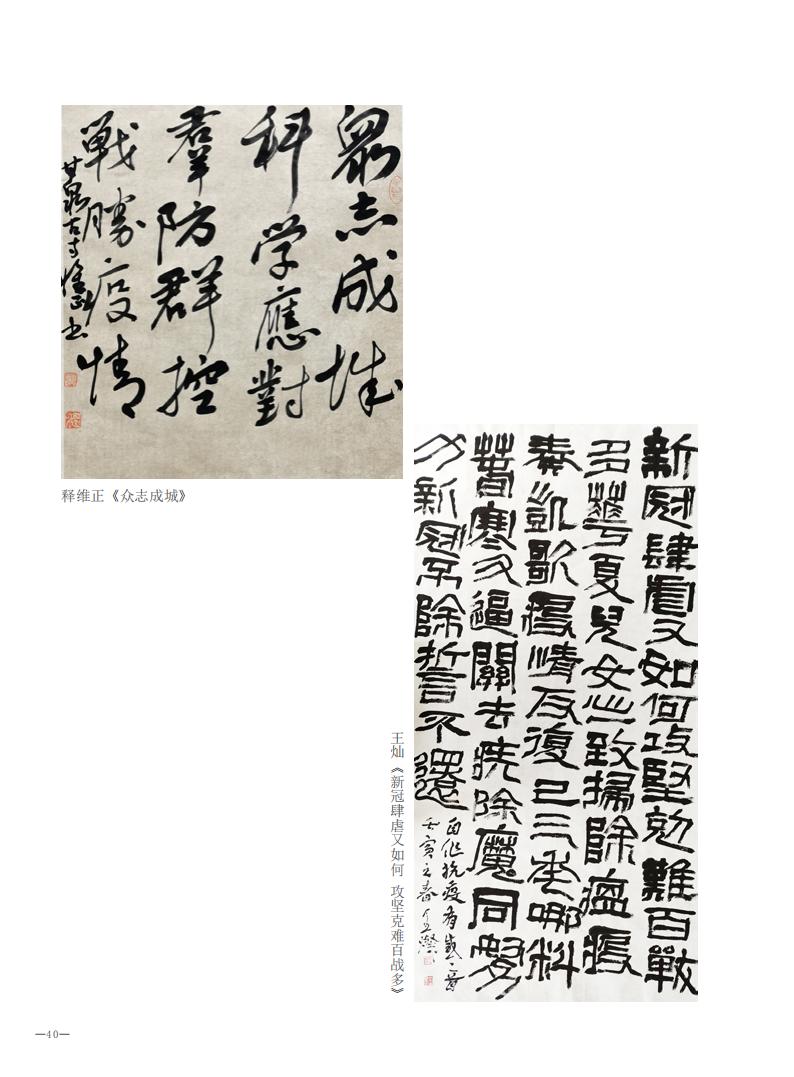 眾志成城
科学應對
羣防群控
戦勝疫情
甘泉古寺维正书
释维正《众志成城》
新冠肆虐又如何攻堅克難百戰
多華夏兒女心一致掃除瘟疫
奏凱歌疫情反復已三年哪料
春寒又逼關去疾除魔同努
力新冠不除誓不還
自作抗疫有感二首
壬寅之春王燦
王灿《新冠肆虐又如何 攻坚克难百战多》
—40—